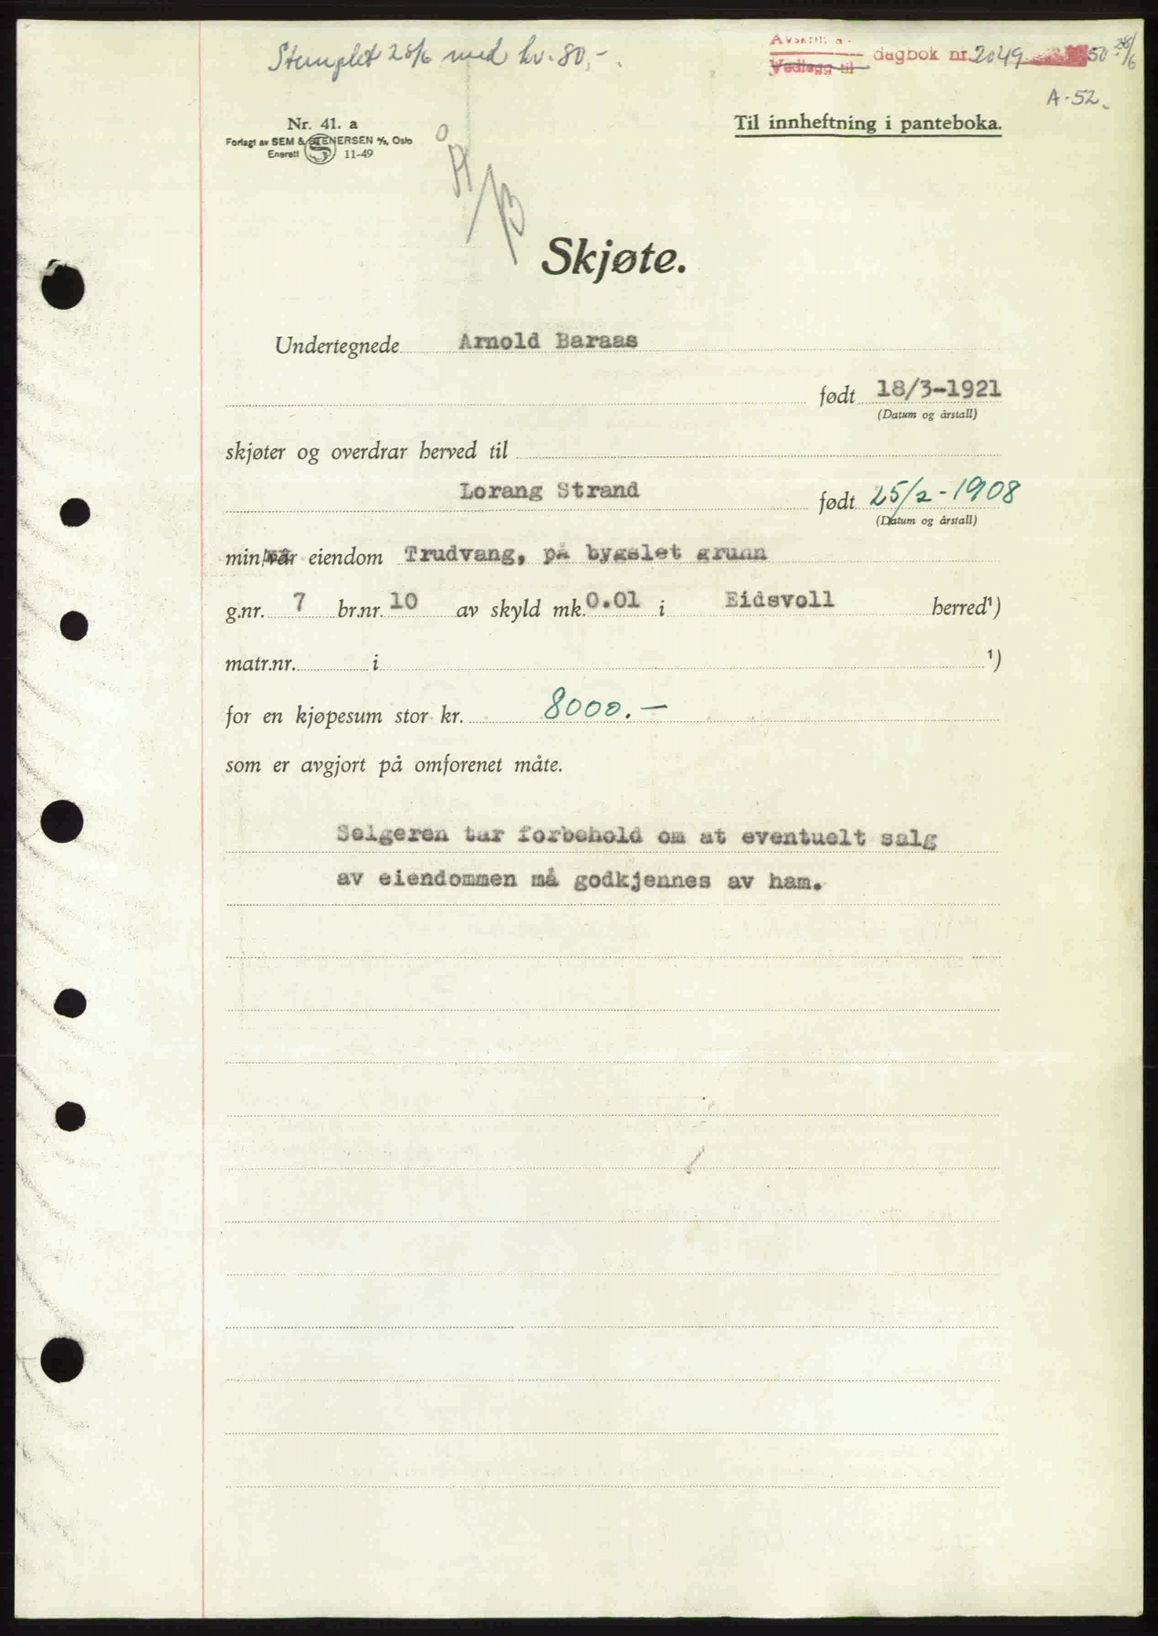 Stemplet 28/6 med kr. 80,-.
Avskrift a
Vedlegg til dagbok nr. 2049 50 28/6
A-52.
Nr. 41. a
Forlagt av SEM & STENERSEN A/S, Oslo
Enerett 11-49
Til innheftning i panteboka.
Å/B
Skjøte.
Undertegnede Arnold Baraas
født 18/3-1921
(Datum og årstall)
skjøter og overdrar herved til
Lorang Strand født 25/2-1908
(Datum og årstall)
min/vår eiendom Trudvang, på bygslet grunn
g.nr. 7 br.nr. 10 av skyld mk. 0.01 i Eidsvoll herred¹)
matr.nr. i ¹)
for en kjøpesum stor kr. 8000.—
som er avgjort på omforenet måte.
Selgeren tar forbehold om at eventuelt salg
av eiendommen må godkjennes av ham.